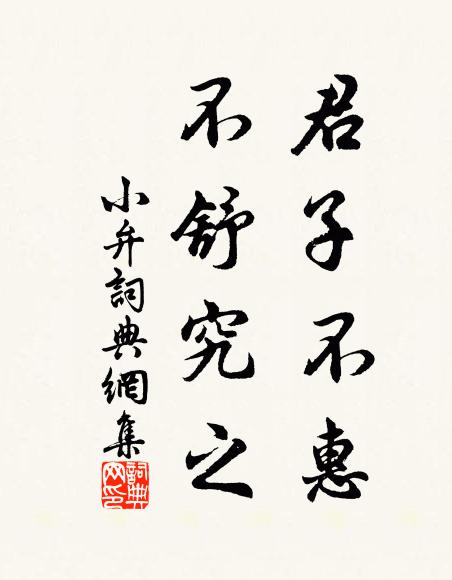 君子不惠
不舒究之
小弁詞典網集
詞典
网印